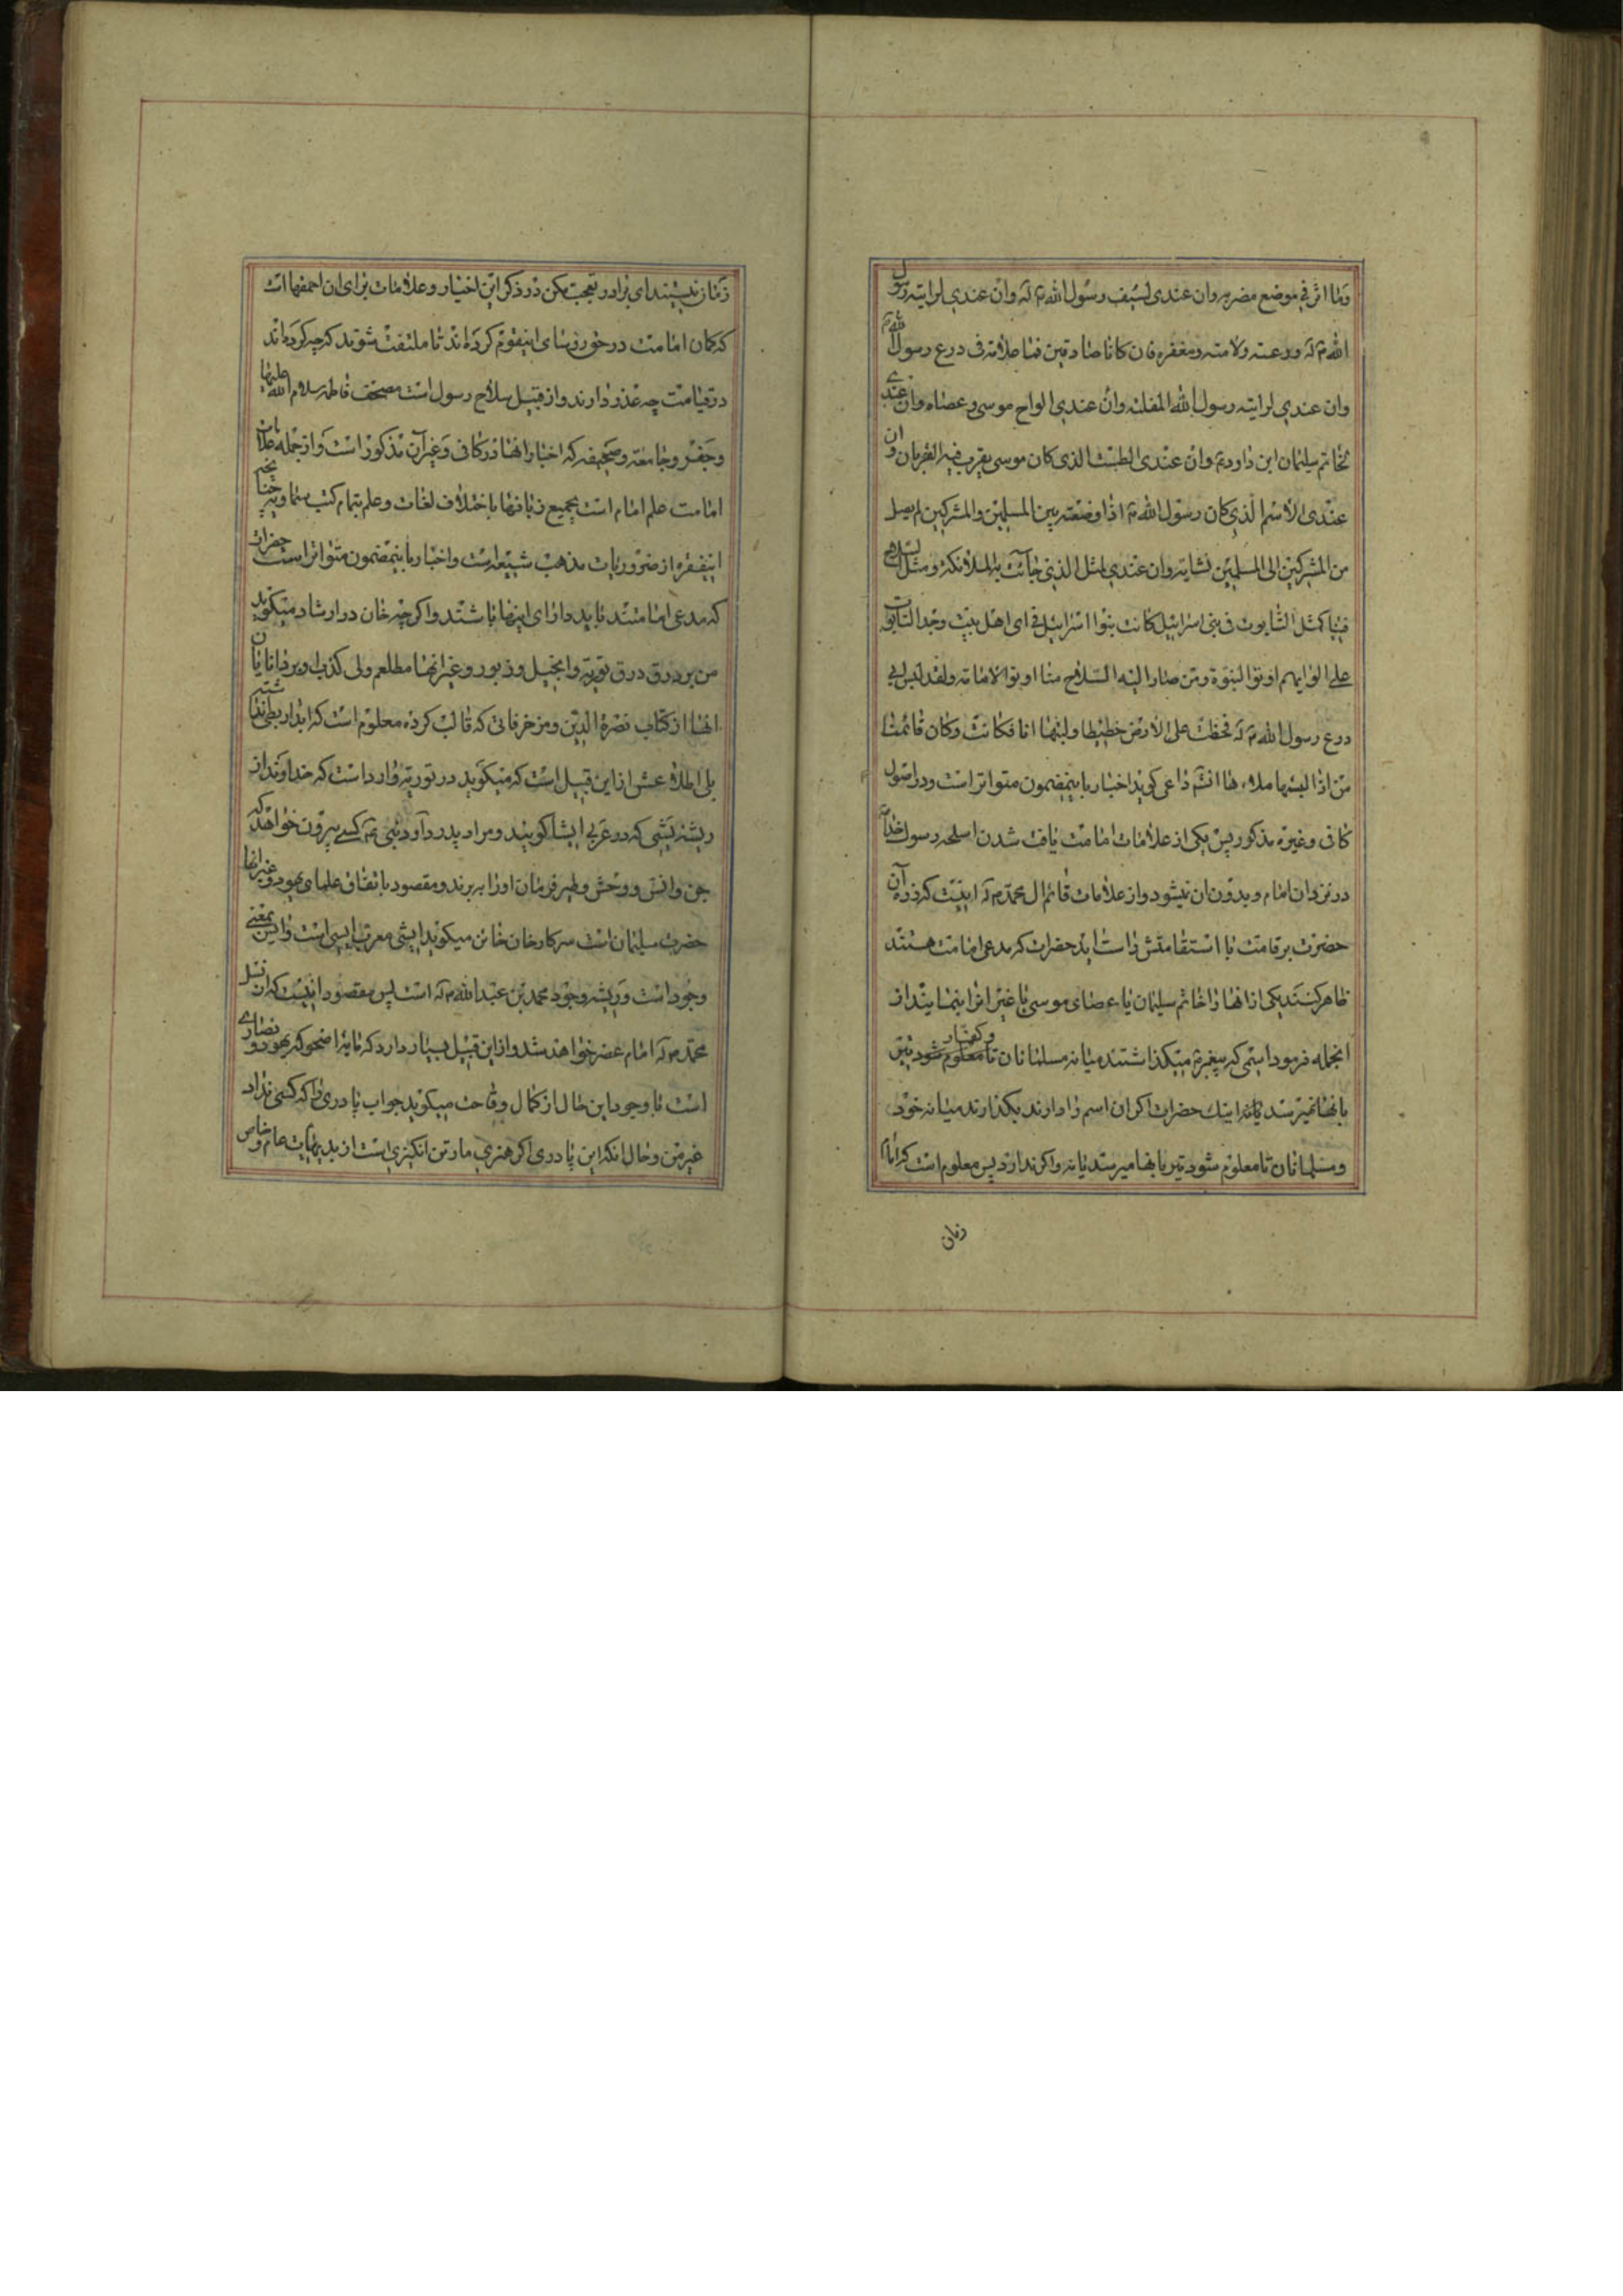 وما اثر فی موضع مضربه وان عندی لسیف رسول الله ص له وان عندی لرایته رسول
الله ص له ودرعته ولامته ومغفره فان کانا صادقین فما علامة فی درع رسول الله ص
وان عندی لرایته رسول الله المغلبه وان عندی الواح موسی وعصاه وان عندی
لخاتم سلیمان ابن داود ع وان عندی الطست الذی کان موسی یقرب فیه القربان وان
عندی الاسم الذی کان رسول الله ص اذا وضعته بین المسلمین والمشرکین لم یصل
من المشرکین الی المسلمین نشابة وان عندی لمثل الذی جاءت به الملائکة ومثل السلاح
فینا کمثل التابوت فی بنی اسرائیل کانت بنوا اسرائیل فی ای اهل بیت وجد التابوت
علی ابوابهم اوتوا النبوة ومن صار الیه السلاح منا اوتوا الامامة ولقد لبس ابی
درع رسول الله ص له فخطت علی الارض خطیطا ولبستها انا فکانت وکان قائمنا
من اذا لبسها ملاء ها انشاء داعی کوید اخبار باینمضمون متواتر است ودر اصول
کافی وغیره مذکور پس یکی از علامات امامت یافت شدن اسلحه رسول خدا ص
در نزد ان امام وبدون ان نمیشود واز علامات قائم ال محمد ص له اینست که زره آن
حضرت بر قامت با استقامتش راست اید حضرات که مدعی امامت هستند
ظاهر کنند یکی از انها را خاتم سلیمان یا عصای موسی یا غیر انرا بنمایند از
انجمله فرمود اسمی که پیغمبر ص میگذاشتند میانه مسلمانان وکفار تا معلوم شود تیر
بانها نمیرسد یانه اینک حضرات اکر ان اسم را دارند بگذارند میانه خود
ومسلمانان تا معلوم شود تیر بانها میرسد یانه واکر ندارند پس معلوم است که امام
زمان
زمان نیستند ای برادر تعجب مکن در ذکر این اخبار وعلامات برای ان احمقها است
که کمان امامت در حق رؤسای اینقوم کرده اند تا ملتفت شوند که چه کرده اند
در قیامت چه عذر دارند واز قبیل سلاح رسول است مصحف فاطمه سلام الله علیها
وجفر وجامعه وصحیفه که اخبار انها در کافی وغیر آن مذکور است واز جمله علامات
امامت علم امام است بجمیع زبانها با اختلاف لغات وعلم بتمام کتب سماویه چنانچه
اینفقره از ضروریات مذهب شیعه است واخبار باینمضمون متواتر است حضرات
که مدعی امامتند باید دارای اینها باشند واکر چه خان در ارشاد میکوید
من بر ورق ورق توریة وانجیل وزبور وغیر انها مطلعم ولی کذب او بر دانایان
انها از کتاب نصرة الدین ومزخرفاتی که قالب کرده معلوم است که ابدا ربطی نداشته
بلی اطلاعش از این قبیل است که میکوید در توریة وارد است که خداوند از
ریشه یشی که در عربی ایشا کویند ومراد پدر داود نبی ع کسی بیرون خواهد که
جن وانس ووحش وطیر فرمان اورا ببرند ومقصود باتفاق علمای یهود وغیر انها
حضرت سلیمان است سرکار خان خائن میکوید ایشی معرب ایسی است وایس بمعنی
وجود است وریشه وجود محمد بن عبد الله ص له است پس مقصود اینست که از نسل
محمد ص له امام عصر خواهد شد واز این قبیل بسیار دارد که مایه اضحوکه یهود ونصاری
است با وجود این حال از کمال وقاحت میکوید جواب پادری را که کسی نداد
غیر من وحال انکه این پادری اکر هنری مارتن انکیزی است از بدیهیات عام وخاص